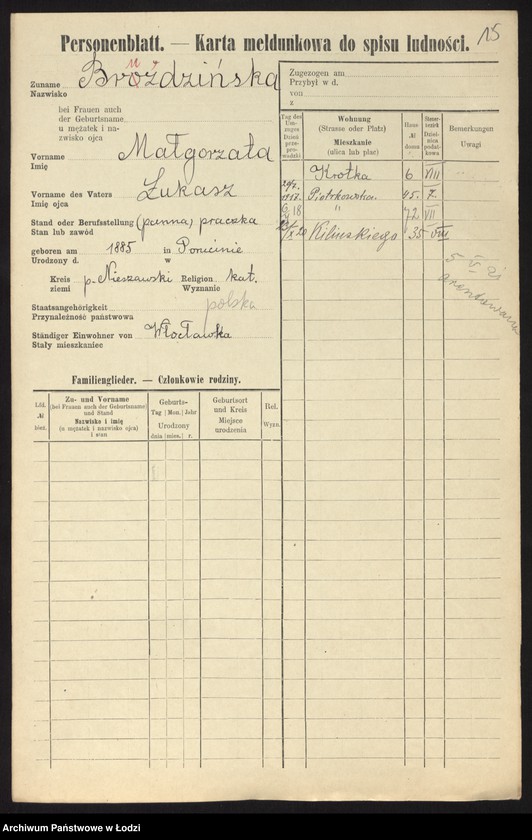 15
Personenblatt. — Karta meldunkowa do spisu ludności.
Zuname
Nazwisko
Bróździńska
bei Frauen auch
der Geburtsname
u mężatek i na-
zwisko ojca
Vorname
Imię
Małgorzata
Vorname des Vaters
Imię ojca
Łukasz
Stand oder Berufsstellung
Stan lub zawód
(panna) praczka
geboren am 1885 in
Urodzony d. w
Kreis p. Nieszawski Religion kat.
ziemi Wyznanie
Staatsangehörigkeit
Przynależność państwowa
polska
Ständiger Einwohner von
Stały mieszkaniec
Włocławka
Zugezogen am
Przybył w d.
von
z
Tag des Um-zuges
Dzień prze-prowadzki
Wohnung
(Strasse oder Platz)
Mieszkanie
(ulica lub plac)
Haus
№
domu
Steuer-bezirk
Dziel-nica
podat-kowa
Bemerkungen
Uwagi
Krótka 6 VIII
Piotrkowska 45.
" 72 VII
Kilińskiego 35 VIII
Familienglieder. — Członkowie rodziny.
Lfd.
№
bież.
Zu- und Vorname
(bei Frauen auch der Geburtsname)
und Stand
Nazwisko i imię
(u mężatek i nazwisko ojca)
i stan
Geburts-
Tag Mon. Jahr
Urodzony
dnia mies. r.
Geburtsort
und Kreis
Miejsce
urodzenia
Rel.
Wyzn.
Archiwum Państwowe w Łodzi